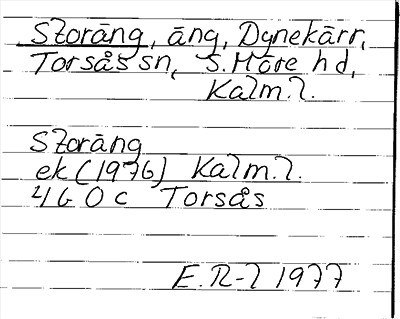 Storäng, äng, Dynekärr,
Torsås sn, S. Möre hd,
Kalm.l.
Storäng
ek (1976) Kalm.l.
4G0c Torsås
E.R-l 1977